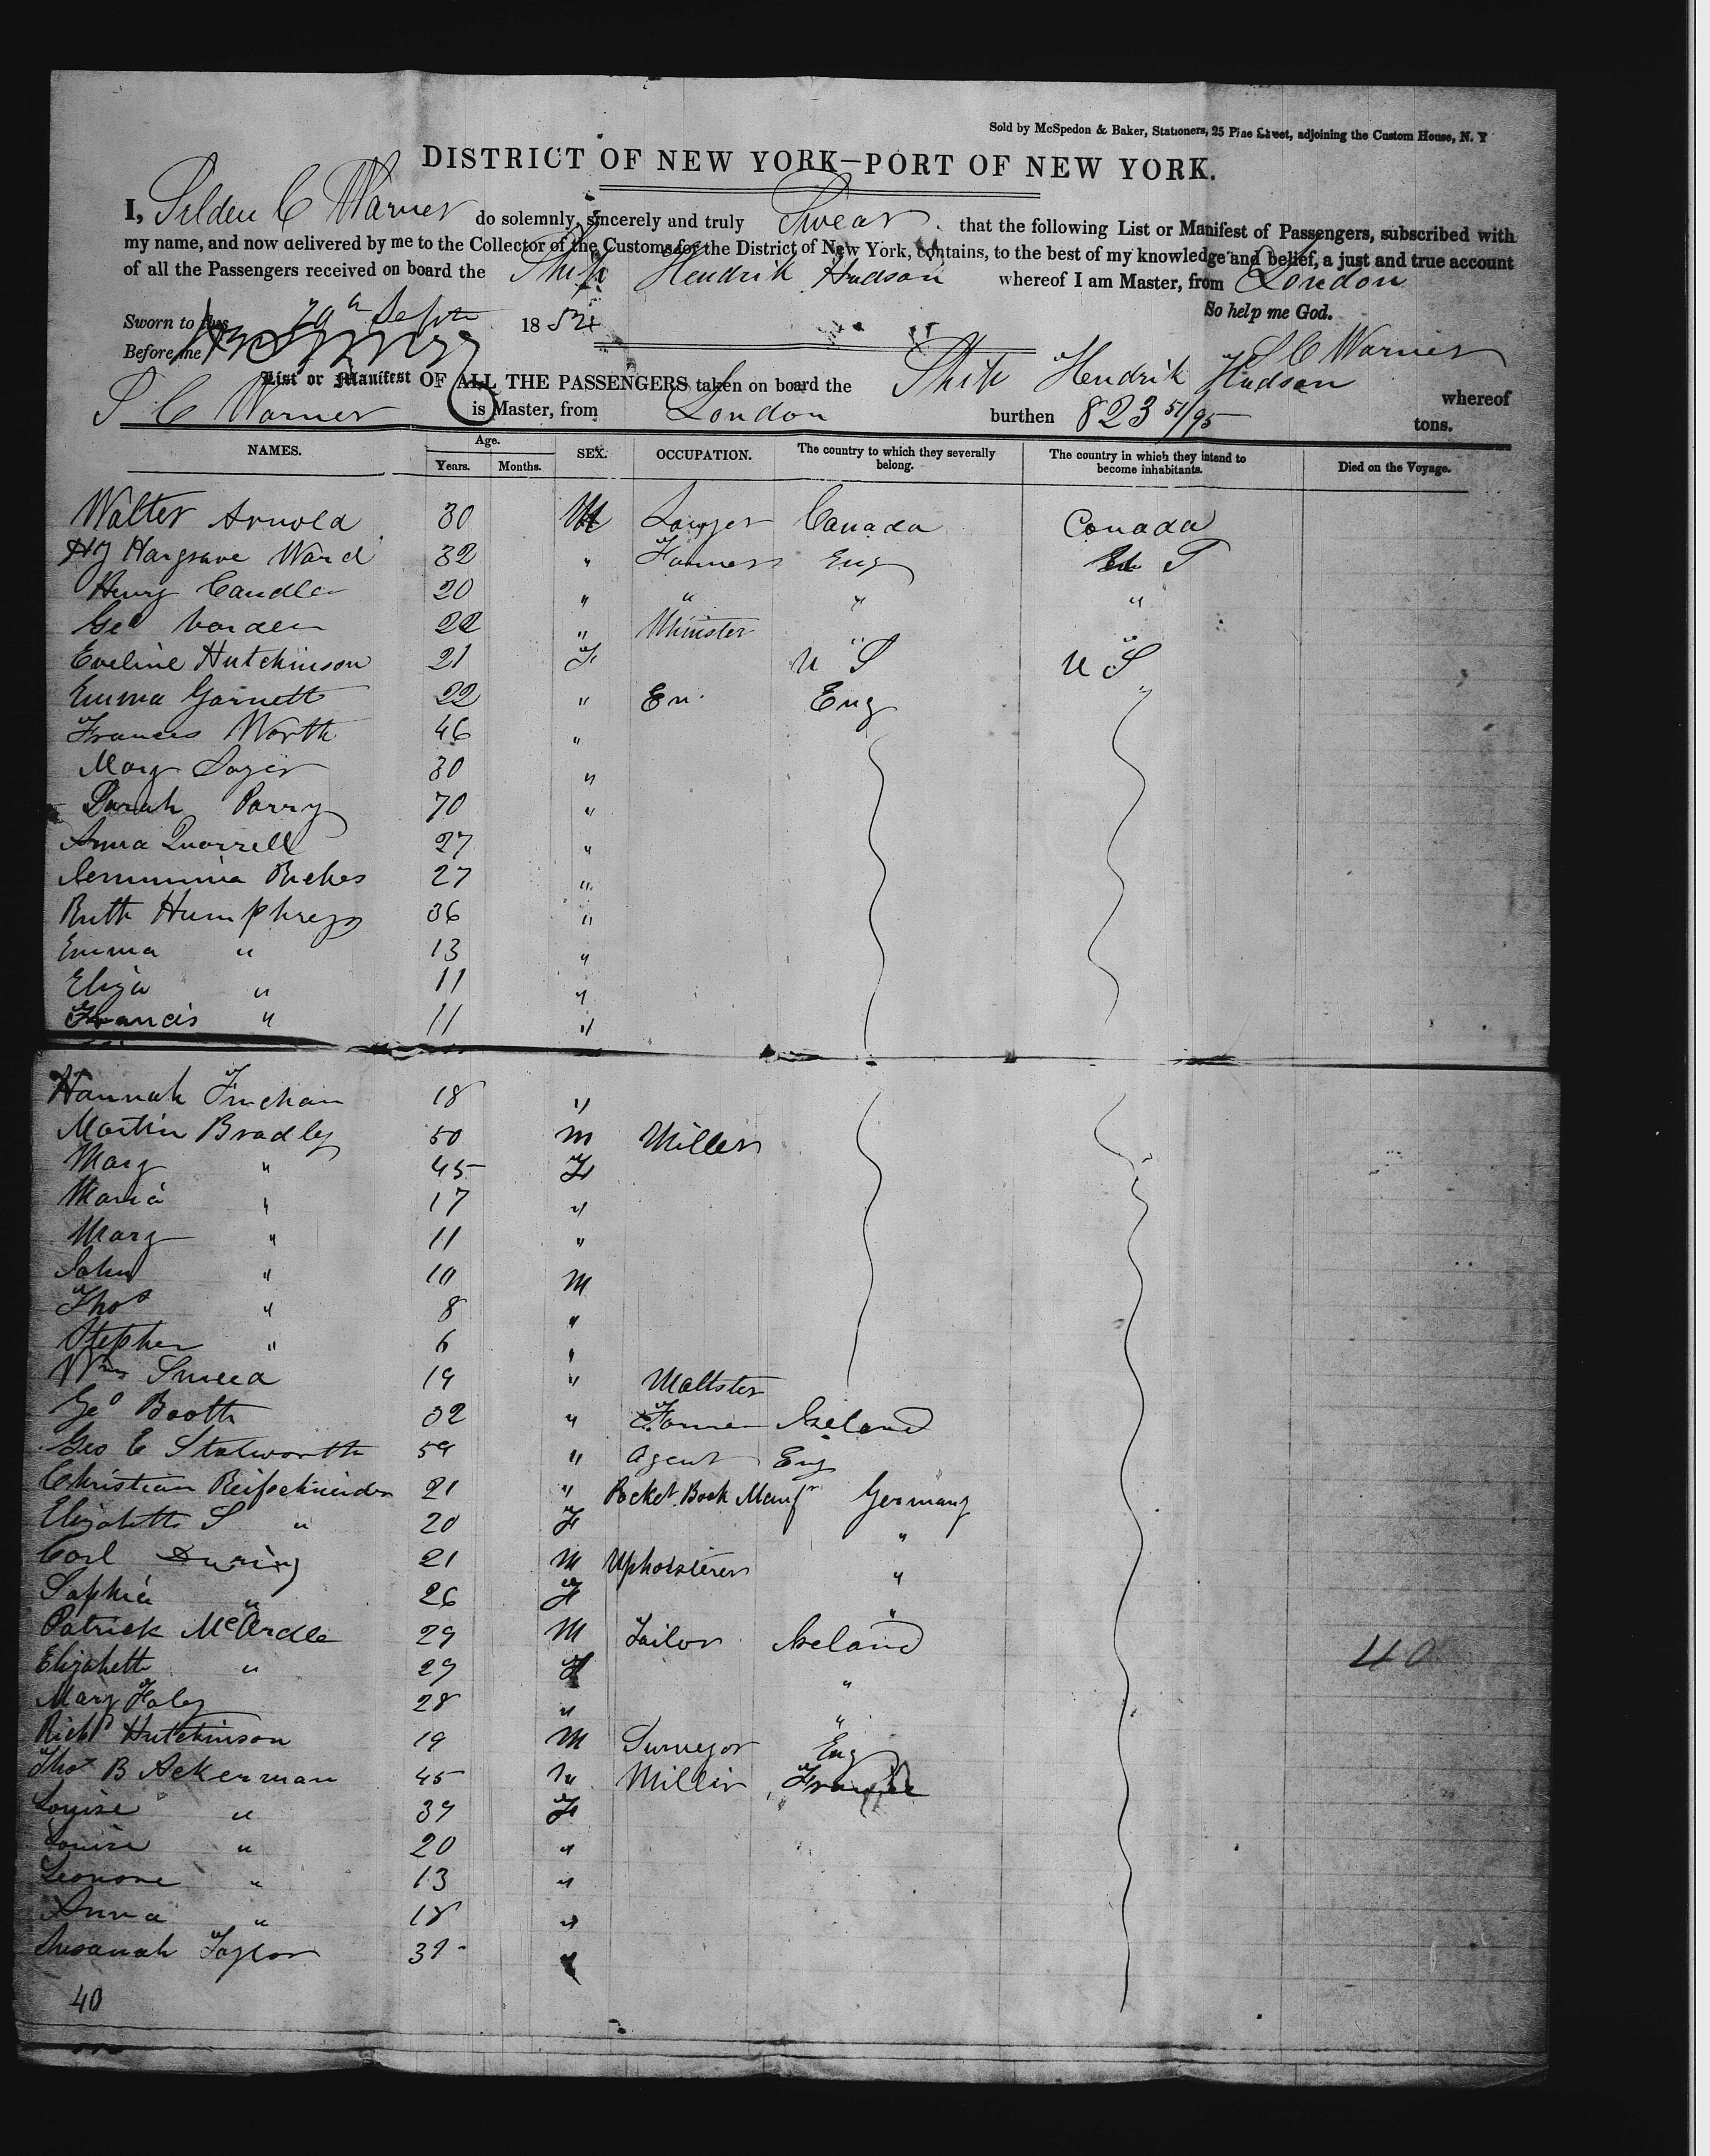 Sold by McSpedon & Baker, Stationers, 25 Pine Street, adjoining the Custom House, N. Y
DISTRICT OF NEW YORK—PORT OF NEW YORK.
I, Selden C Warner do solemnly, sincerely and truly Swear that the following List or Manifest of Passengers, subscribed with
my name, and now delivered by me to the Collector of the Customs for the District of New York, contains, to the best of my knowledge and belief, a just and true account
of all the Passengers received on board the Ship Hendrik Hudson whereof I am Master, from London
So help me God.
Sworn to this Sept 18
Before me S C Warner
List or Manifest OF ALL THE PASSENGERS taken on board the Ship Hendrik Hudson whereof
S C Warner is Master, from London burthen 823 51/95 tons.
NAMES. Age. Years. Months. SEX. OCCUPATION. The country to which they severally belong. The country in which they intend to become inhabitants. Died on the Voyage.
Walter Arnold 30 M Lawyer Canada Canada
Hy Hargrave Ward 32 " Farmer Eng
Henry Candler 20 " " " "
Geo 22 " Minister " "
Eveline Hutchinson 21 F U S U S
Emma Garnett 22 " Eng "
Frances Worth 46 "
Mary Sayer 30 "
Sarah Parry 70 "
Anna Quarrell 27 "
27 "
Ruth Humphreys 36 "
Emma " 13 "
Eliza " 11 "
Francis " 11 "
Hannah 18 "
Martin Bradley 50 M Miller
Mary " 45 F
Maria " 17 "
Mary " 11 "
John " 10 M
Thos " 8 "
Stephen " 6 "
Wm Smeed 19 " Maltster
Geo Booth 32 " Farmer Ireland
Geo E Stalworth 59 " Agent Eng
Christian Reifschneider 21 " Pocket Book Manfr Germany
Elizabeth S " 20 F "
Carl During 21 M Upholsterer "
Sophia " 26 F "
Patrick McArdle 29 M Tailor Ireland 40
Elizabeth " 29 F "
Mary Foley 28 " "
Richd Hutchinson 19 M Surveyor Eng
Thos B Ackerman 45 M Miller France
Louise " 39 F
Louise " 20 "
Leonore " 13 "
Anna " 18 "
Susanah Taylor 39 "
40